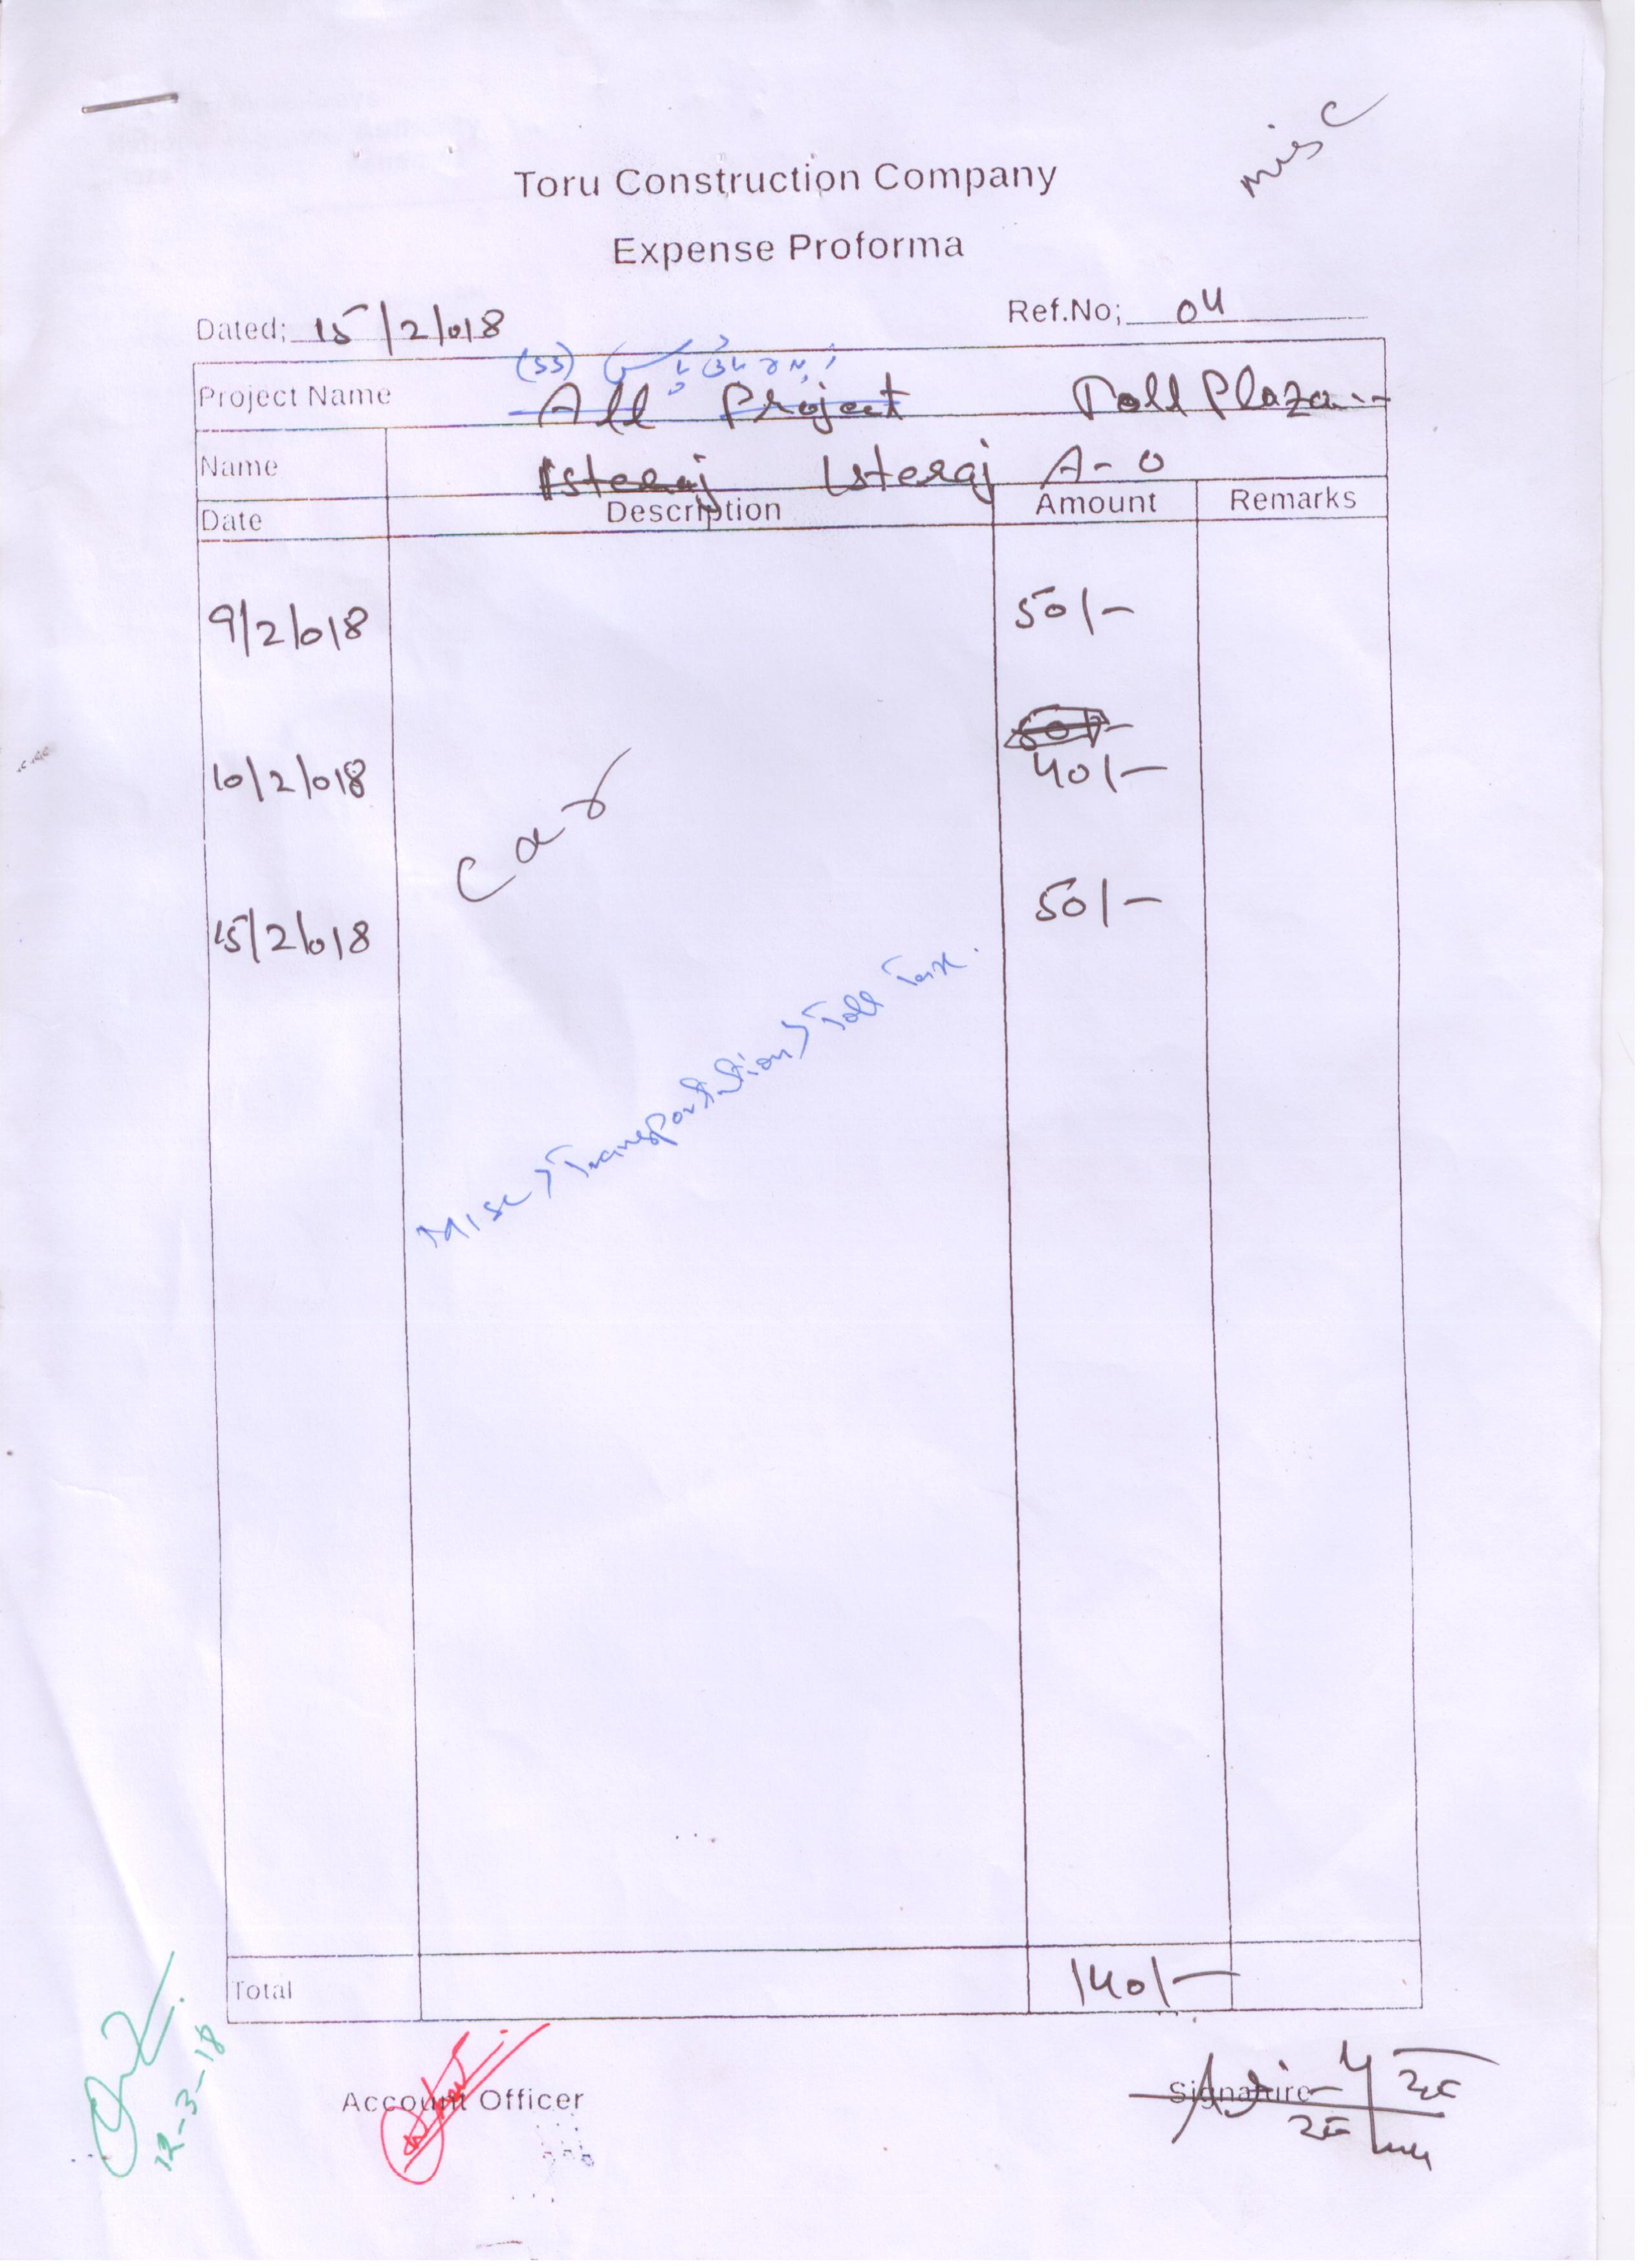 misc
Toru Construction Company
Expense Proforma
Dated; 15/2/018 Ref.No; 04
(SS)
Project Name All Project Toll Plaza
Name Isteraj Isteraj A-O
Date Description Amount Remarks
9/2/018 50/-
10/2/018 40/-
Car
15/2/018 50/-
Misc > Transportation > Toll Tax.
Total 140/-
12-3-18
Account Officer Signature